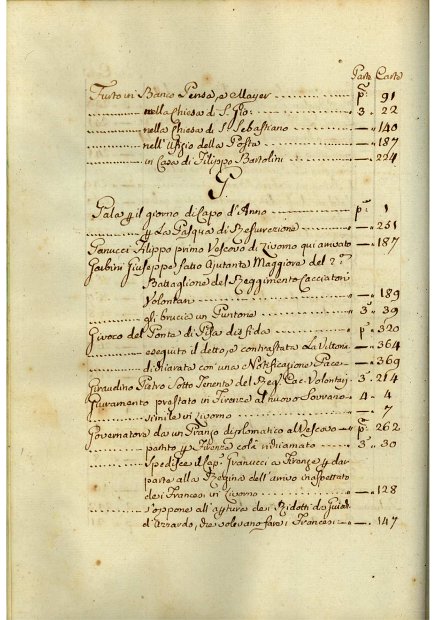 Parte Carte
Furto in Banco Pensa, e Mayer p.ª 91
nella Chiesa di S. Gio: 3 22
nella Chiesa di S. Sebastiano — 140
nell'Ufizio della Posta — 187
in Casa di Filippo Bartolini — 224
G.
Gala p il giorno di Capo d'Anno p.ª 1
p La Pasqua di Resurrezione — 251
Ganucci Filippo primo Vescovo di Livorno qui arrivato — 187
Garbini Giuseppe fatto Ajutante Maggiore del 2.º
Battaglione del Reggimento Cacciatori
Volontari — 189
gli brucia un Puntone 3.ª 39
Givoco del Ponte di Pisa disfida p.ª 320
eseguito il detto, e contrastata La Vittoria — 364
dichiarata con una Notificazione Pace — 369
Giraudino Pietro Sotto Tenente del Reg. Cac. Volontari 3.ª 214
Giuramento prestato in Firenze al nuovo Sovrano 4 4
simile in Livorno — 7
Governatore da un Pranzo diplomatico al Vescovo p.ª 262
partito p Firenze colà richiamato 3.ª 30
Spedisce il Cap. Granucci a Firenze p dar
parte alla Regina dell'arrivo inaspettato
dei Francesi in Livorno — 128
s'oppone all'apertura dei Ridotti da Giuochi
d'Azzardo, che volevano fare i Francesi — 147